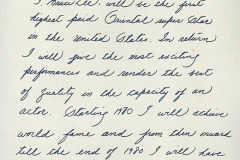 I, Bruce Lee, will be the first
highest paid Oriental super star
in the United States. In return
I will give the most exciting
performances and render the best
of quality in the capacity of an
actor. Starting 1970 I will achieve
world fame and from then onward
till the end of 1980 I will have